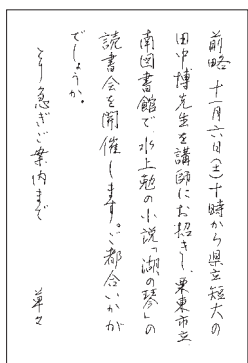 前略 十一月六日(土)十時から県立短大の
田中博先生を講師にお招きし、栗東市立
南図書館で水上勉の小説「湖の琴」の
読書会を開催します。ご都合いかが
でしょうか。
とり急ぎご案内まで
草々